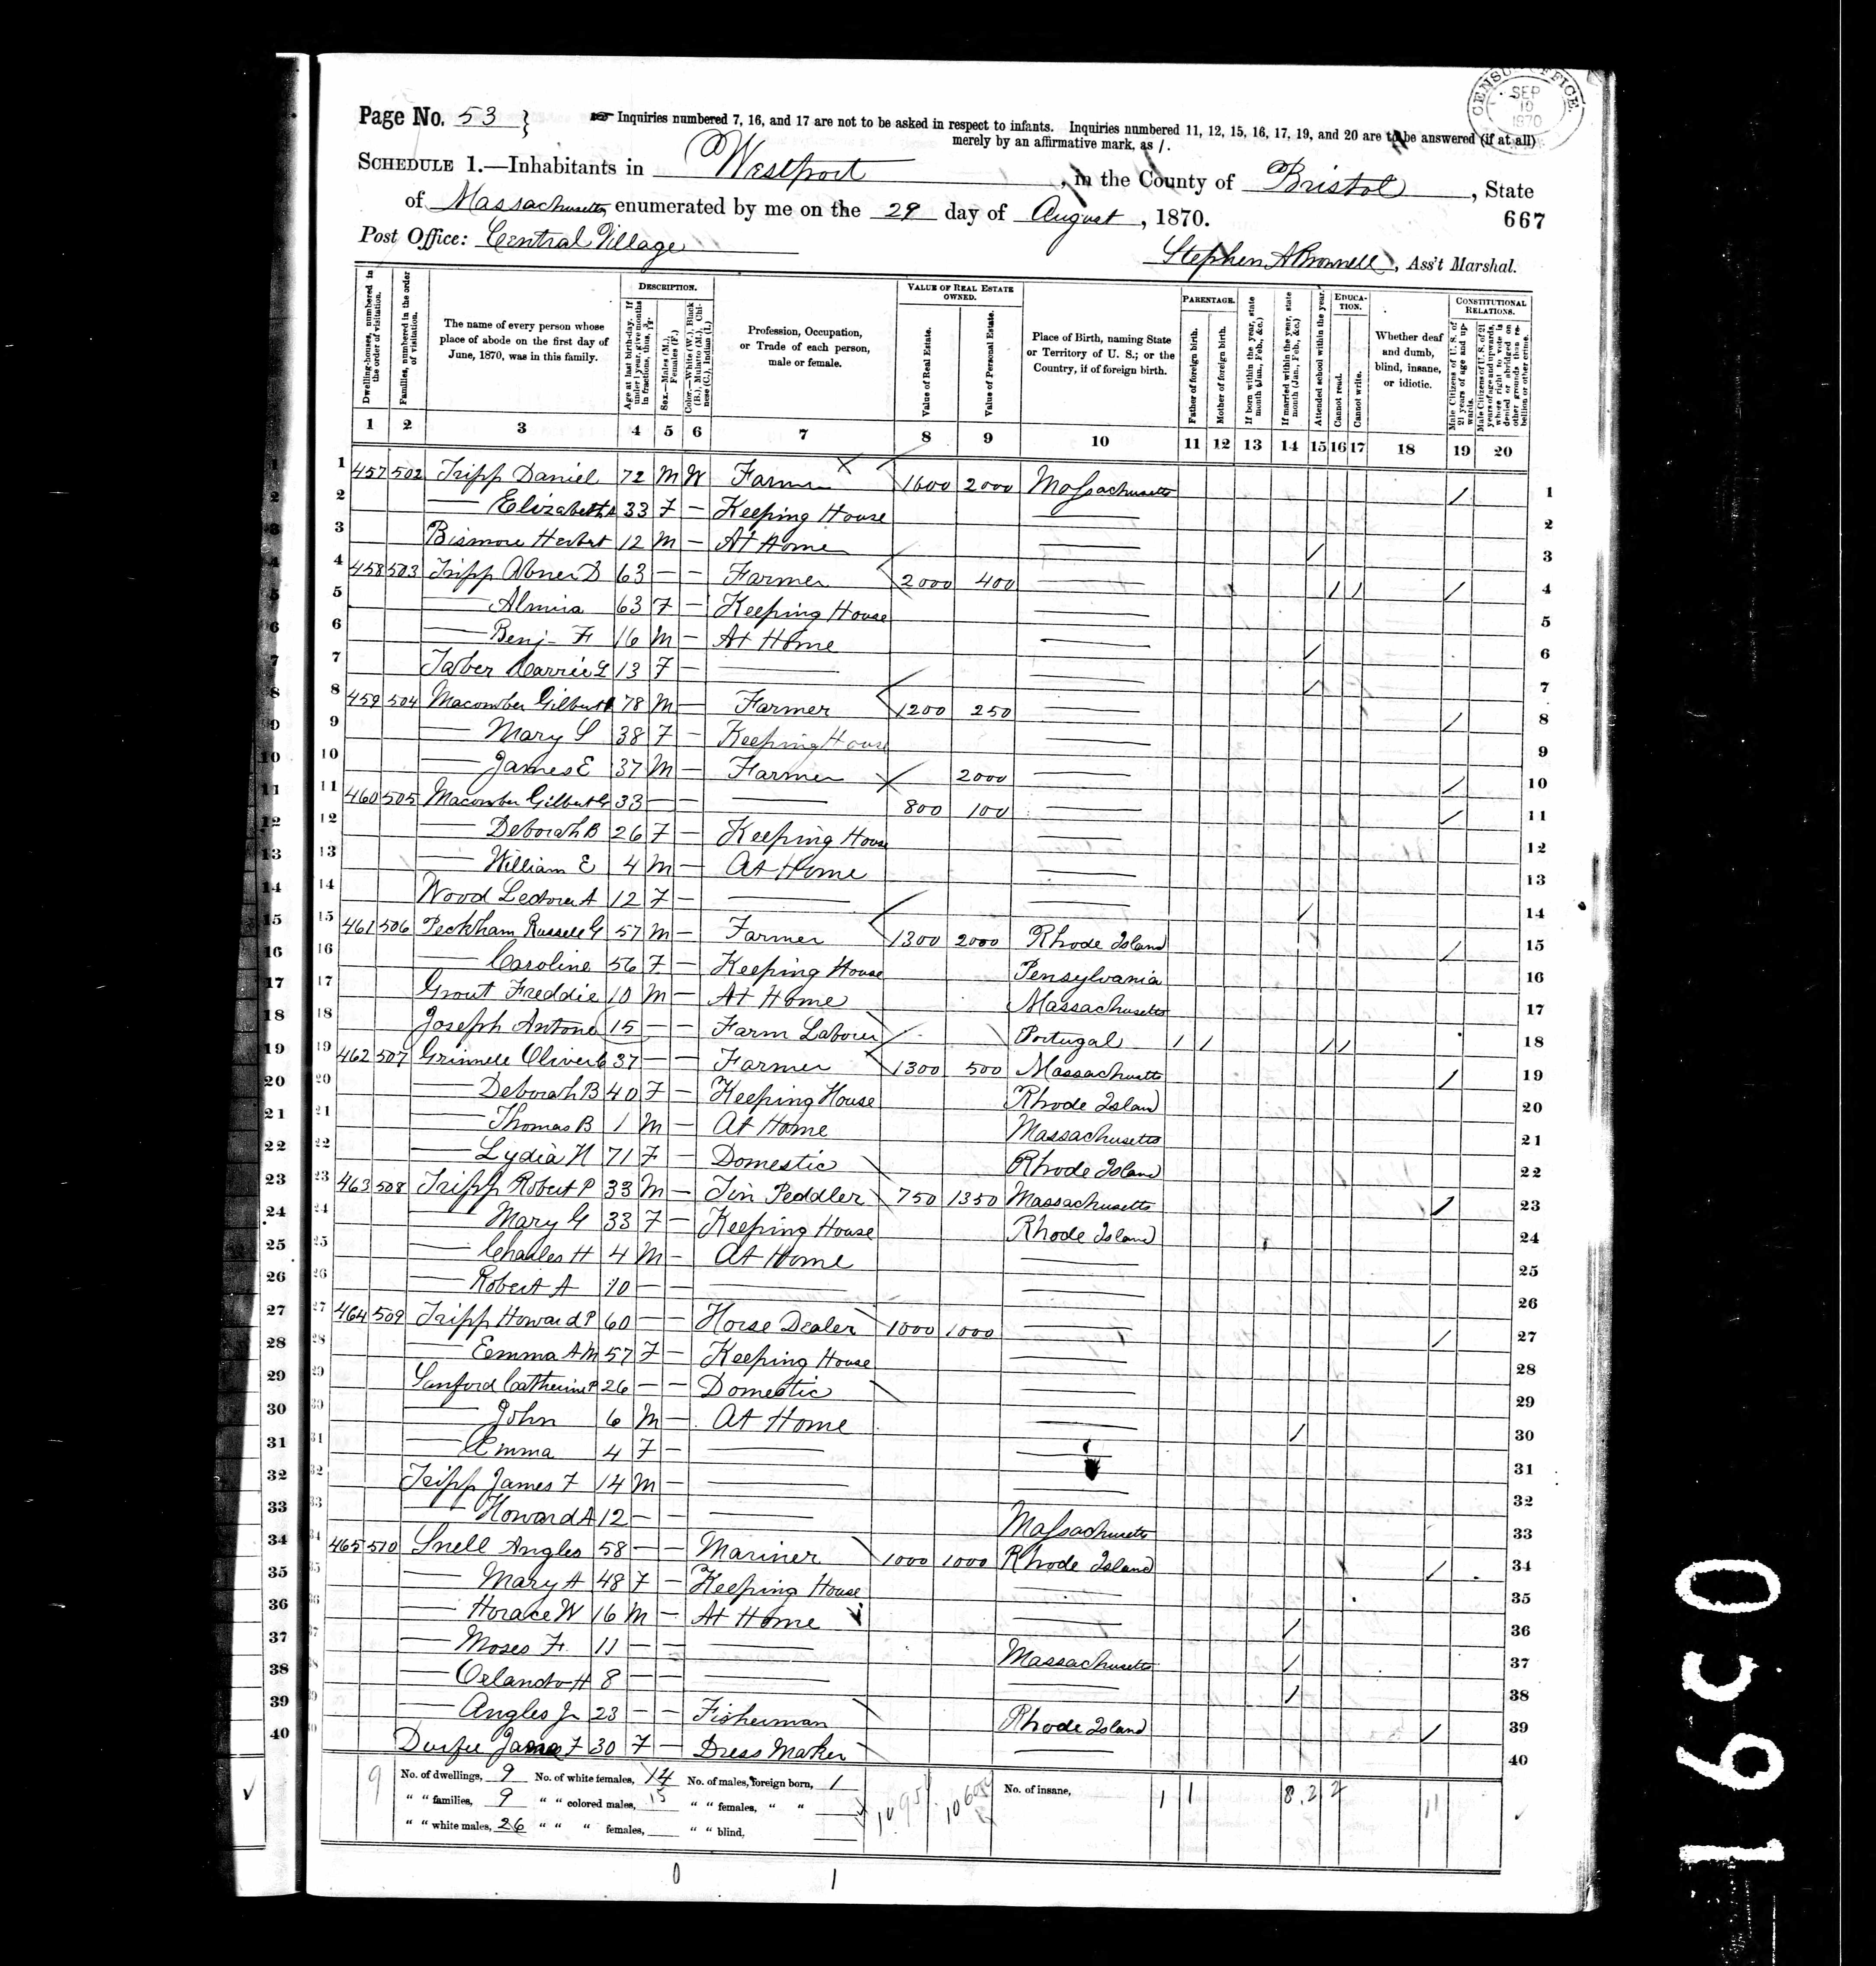 CENSUS OFFICE.
SEP
10
1870
Page No. 53 }
Inquiries numbered 7, 16, and 17 are not to be asked in respect to infants. Inquiries numbered 11, 12, 15, 16, 17, 19, and 20 are to be answered (if at all)
merely by an affirmative mark, as /.
SCHEDULE 1.—Inhabitants in Westport, in the County of Bristol, State
of Massachusetts, enumerated by me on the 29 day of August, 1870.
667
Post Office: Central Village
Stephen A Brownell, Ass't Marshal.
Dwelling-houses, numbered in the order of visitation.
Families, numbered in the order of visitation.
The name of every person whose place of abode on the first day of June, 1870, was in this family.
DESCRIPTION.
Age at last birth-day. If under 1 year, give months in fractions, thus, 3/12.
Sex.—Males (M.), Females (F.)
Color.—White (W.), Black (B.), Mulatto (M.), Chinese (C.), Indian (I.)
Profession, Occupation, or Trade of each person, male or female.
VALUE OF REAL ESTATE OWNED.
Value of Real Estate.
Value of Personal Estate.
Place of Birth, naming State or Territory of U. S.; or the Country, if of foreign birth.
PARENTAGE.
Father of foreign birth.
Mother of foreign birth.
If born within the year, state month (Jan., Feb., &c.)
If married within the year, state month (Jan., Feb., &c.)
Attended school within the year.
EDUCATION.
Cannot read.
Cannot write.
Whether deaf and dumb, blind, insane, or idiotic.
CONSTITUTIONAL RELATIONS.
Male Citizens of U. S. of 21 years of age and upwards.
Male Citizens of U. S. of 21 years of age and upwards, where right to vote is denied or abridged on other grounds than rebellion or other crime.
1 2 3 4 5 6 7 8 9 10 11 12 13 14 15 16 17 18 19 20
1 457 502 Tripp Daniel 72 M W Farmer 1600 2000 Massachusetts / 1
2 — Elizabeth A 33 F — Keeping House — 2
3 Bismore Herbert 12 M — At Home — / 3
4 458 503 Tripp Abner D 63 — — Farmer 2000 400 — / / / 4
5 — Almira 63 F — Keeping House — 5
6 — Benj F 16 M — At Home — / 6
7 Taber Carrie G 13 F — — — / 7
8 459 504 Macomber Gilbert 78 M — Farmer 1200 250 — / 8
9 — Mary S 38 F — Keeping House — 9
10 — James E 37 M — Farmer 2000 — / 10
11 460 505 Macomber Gilbert G 33 — — — 800 100 — / 11
12 — Deborah B 26 F — Keeping House — 12
13 — William E 4 M — At Home — 13
14 Wood A 12 F — — — / 14
15 461 506 Peckham Russell G 57 M — Farmer 1300 2000 Rhode Island / 15
16 — Caroline 56 F — Keeping House Pensylvania 16
17 Grout Freddie 10 M — At Home Massachusetts 17
18 Joseph Antone 15 — — Farm Laborer Portugal / / / / 18
19 462 507 Grinnell Oliver C 37 — — Farmer 1300 500 Massachusetts / 19
20 — Deborah B 40 F — Keeping House Rhode Island 20
21 — Thomas B 1 M — At Home Massachusetts 21
22 — Lydia H 71 F — Domestic Rhode Island 22
23 463 508 Tripp Robert P 33 M — Tin Peddler 750 1350 Massachusetts / 23
24 — Mary G 33 F — Keeping House Rhode Island 24
25 — Charles H 4 M — At Home — 25
26 — Robert A 10 — — — — 26
27 464 509 Tripp Howard P 60 — — Horse Dealer 1000 1000 — / 27
28 — Emma A M 57 F — Keeping House — 28
29 Sanford Catherine P 26 — — Domestic — 29
30 — John 6 M — At Home — / 30
31 — Emma 4 F — — — 31
32 Tripp James F 14 M — — — 32
33 — Howard A 12 — — — Massachusetts 33
34 465 510 Snell Angles 58 — — Mariner 1000 1000 Rhode Island / 34
35 — Mary A 48 F — Keeping House — 35
36 — Horace W 16 M — At Home — / 36
37 — Moses F. 11 — — — Massachusetts / 37
38 — Orlando H 8 — — — — / 38
39 — Angles Jr 23 — — Fisherman Rhode Island / 39
40 Durfee F 30 F — Dress Maker — 40
9 No. of dwellings, 9 No. of white females, 14 No. of males, foreign born, 1 No. of insane, 1 1 8 2 2 11
" " families, 9 " " colored males, " " females, " "
" " white males, 26 " " " females, " " blind,
0 1